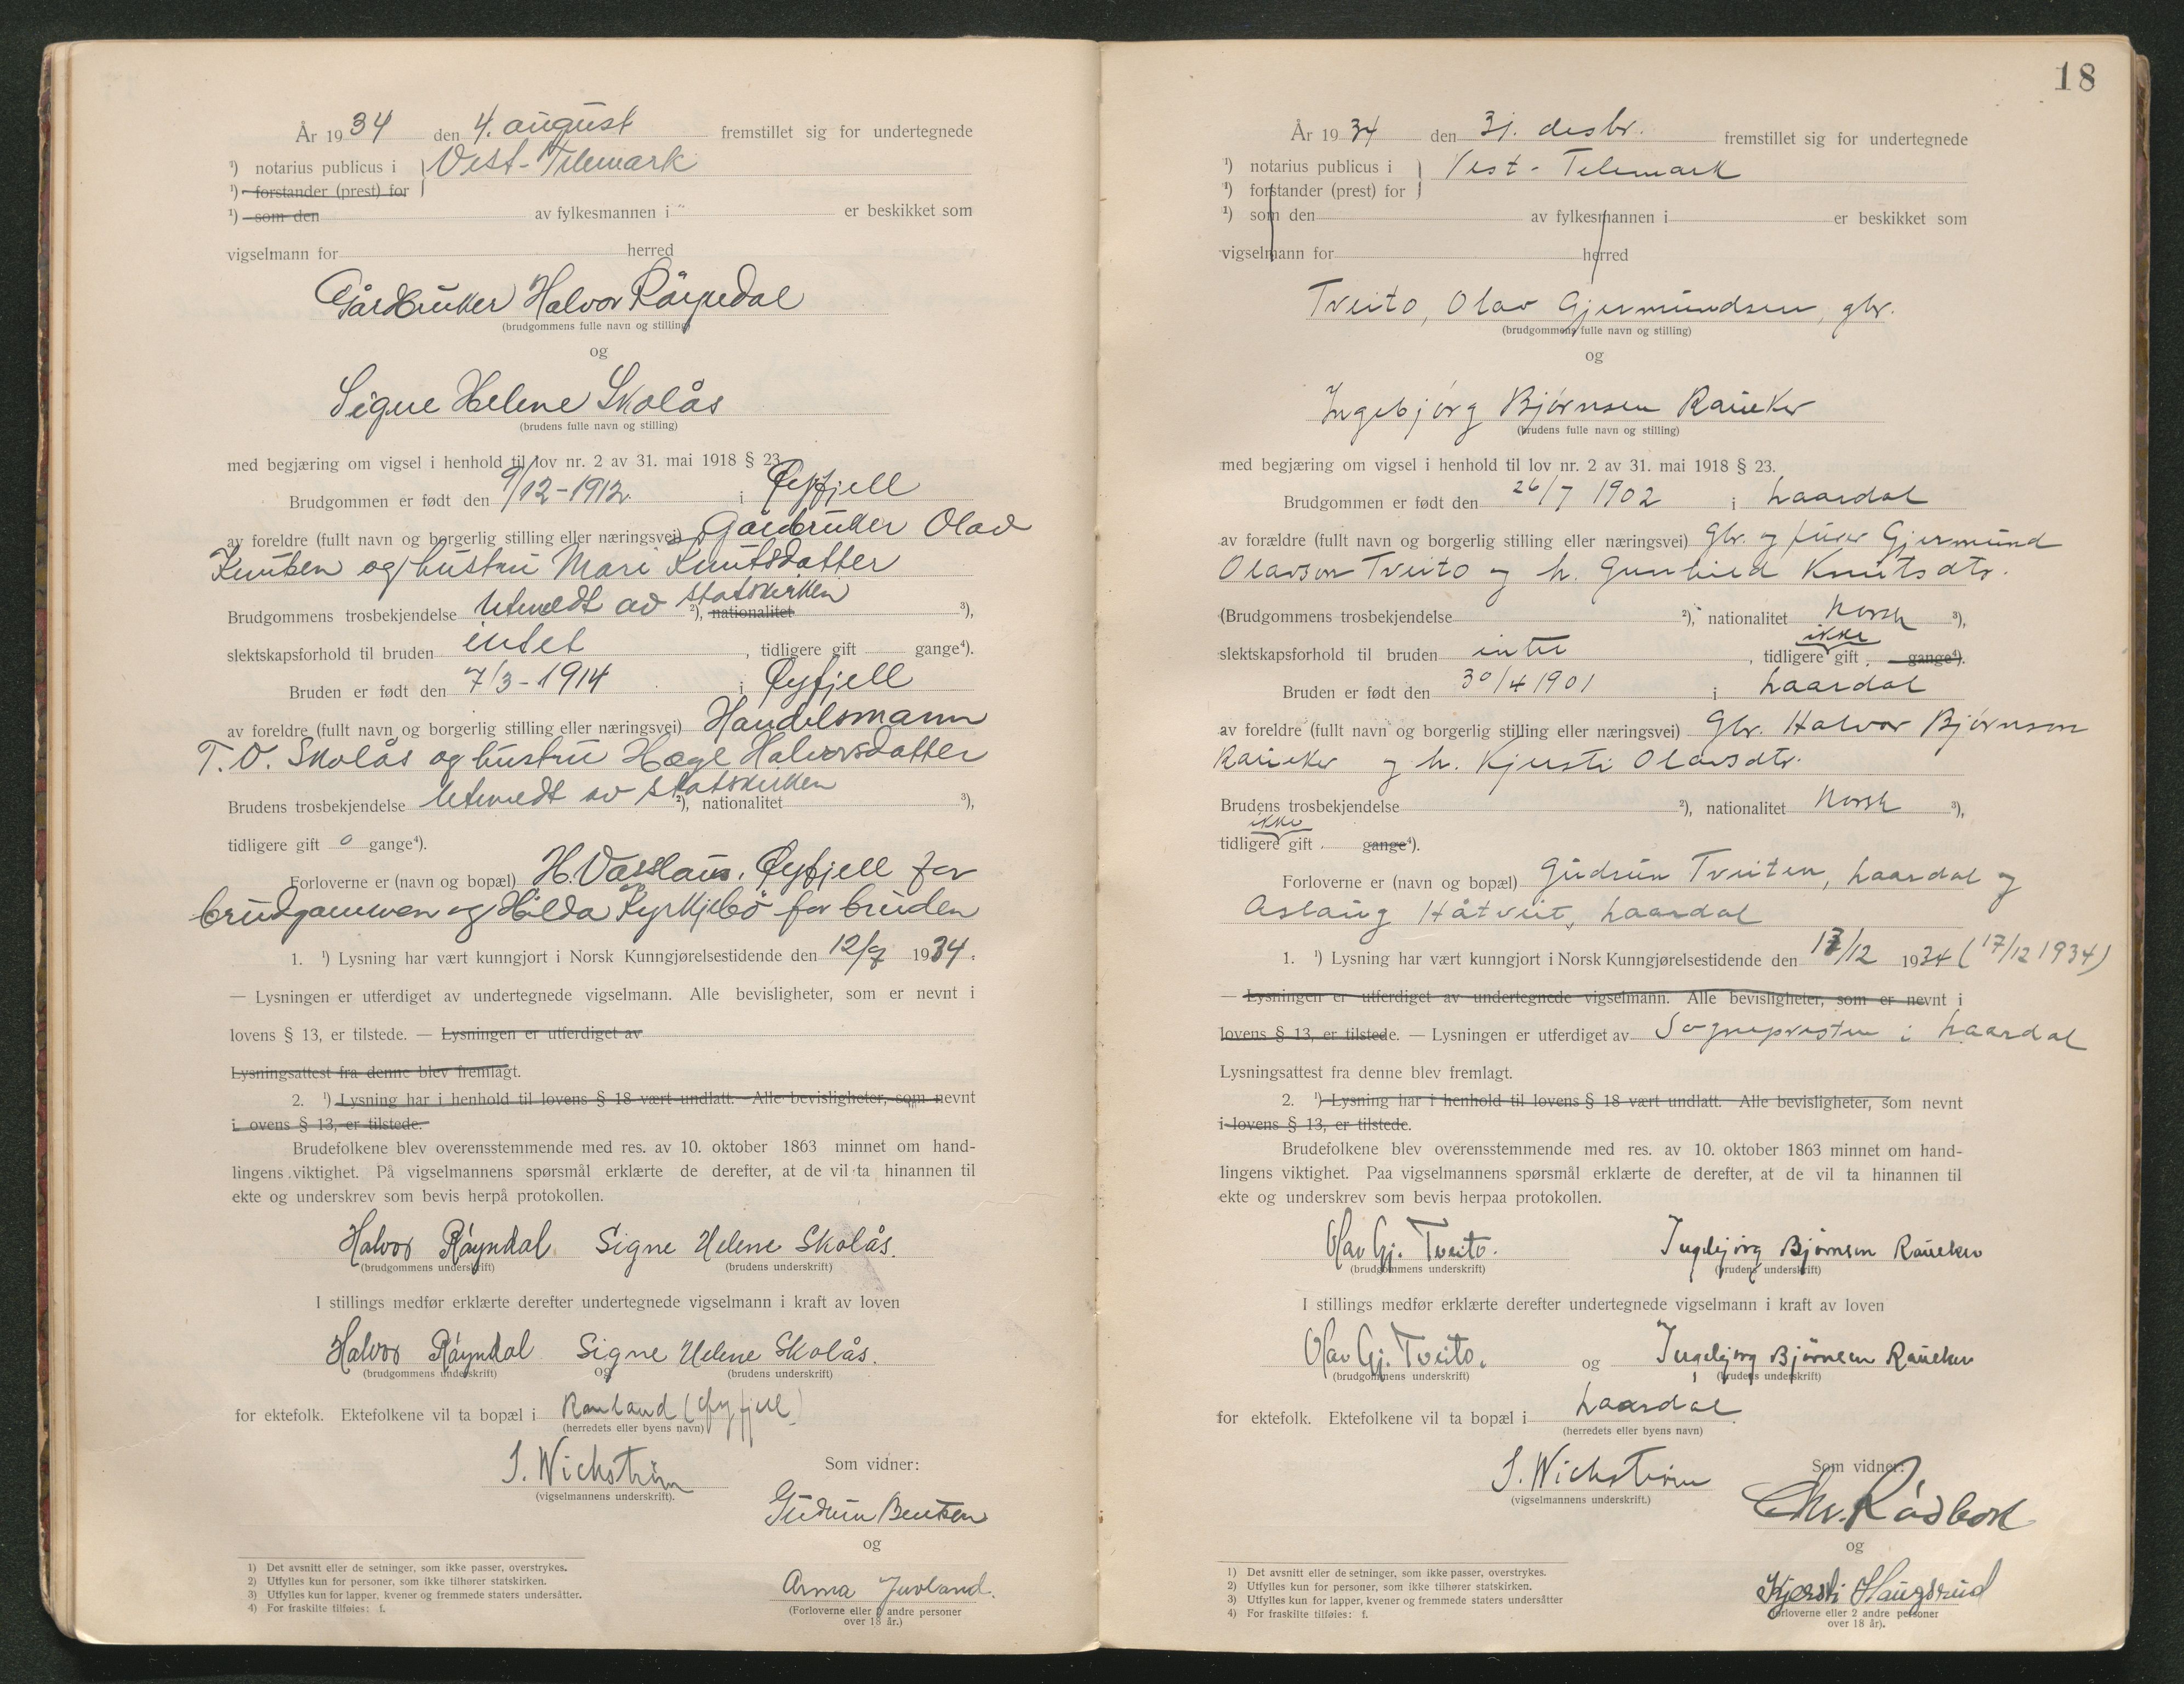 År 1934 den 4. august fremstillet sig for undertegnede
¹) notarius publicus i } Vest-Telemark
¹) forstander (prest) for
¹) som den av fylkesmannen i " er beskikket som
vigselmann for herred
Gårdbruker Halvor Röyndal
(brudgommens fulle navn og stilling)
og
Signe Helene Skolås
(brudens fulle navn og stilling)
med begjæring om vigsel i henhold til lov nr. 2 av 31. mai 1918 § 23.
Brudgommen er født den 9/12-1912. i Øyfjell
av foreldre (fullt navn og borgerlig stilling eller næringsvei) Gårdbruker Olav
Knutsen og hustru Mari Knutsdatter
Brudgommens trosbekjendelse Utmeldt av statskirken ²), nationalitet ³),
slektskapsforhold til bruden intet, tidligere gift gange⁴).
Bruden er født den 7/3-1914 i Øyfjell
av foreldre (fullt navn og borgerlig stilling eller næringsvei) Handelsmann
T. O. Skolås og hustru Hæge Halvorsdatter
Brudens trosbekjendelse Utmeldt av statskirken ²), nationalitet ³),
tidligere gift 0 gange⁴).
Forloverne er (navn og bopæl) H. Vasslaus. Øyfjell for
brudgommen og Hilda Kyrkjebö for bruden
1. ¹) Lysning har vært kunngjort i Norsk Kunngjørelsestidende den 12/7 1934.
— Lysningen er utferdiget av undertegnede vigselmann. Alle bevisligheter, som er nevnt i
lovens § 13, er tilstede. — Lysningen er utferdiget av
Lysningsattest fra denne blev fremlagt.
2. ¹) Lysning har i henhold til lovens § 18 vært undlatt. Alle bevisligheter, som nevnt
i lovens § 13, er tilstede.
Brudefolkene blev overensstemmende med res. av 10. oktober 1863 minnet om hand-
lingens viktighet. På vigselmannens spørsmål erklærte de derefter, at de vil ta hinannen til
ekte og underskrev som bevis herpå protokollen.
Halvor Röyndal Signe Helene Skolås.
(brudgommens underskrift) (brudens underskrift)
I stillings medfør erklærte derefter undertegnede vigselmann i kraft av loven
Halvor Röyndal Signe Helene Skolås.
(brudgommens underskrift) og (brudens underskrift)
for ektefolk. Ektefolkene vil ta bopæl i Rauland (Øyfjell)
(herredets eller byens navn)
S. Wichstrøm
(vigselmannens underskrift).
Som vidner:
Gudrun Bentsen
og
Anna Juvland.
(Forloverne eller 2 andre personer
over 18 år.)
1) Det avsnitt eller de setninger, som ikke passer, overstrykes.
2) Utfylles kun for personer, som ikke tilhører statskirken.
3) Utfylles kun for lapper, kvener og fremmede staters undersåtter.
4) For fraskilte tilføies: f.
18
År 1934 den 31. desbr. fremstillet sig for undertegnede
¹) notarius publicus i } Vest-Telemark
¹) forstander (prest) for
¹) som den av fylkesmannen i er beskikket som
vigselmann for herred
Tveito, Olav Gjermundsen, gbr.
(brudgommens fulle navn og stilling)
og
Ingebjörg Björnsen Raueker
(brudens fulle navn og stilling)
med begjæring om vigsel i henhold til lov nr. 2 av 31. mai 1918 § 23.
Brudgommen er født den 26/7 1902 i Laardal
av forældre (fullt navn og borgerlig stilling eller næringsvei) Gbr. og Gjermund
Olavson Tveito og h. Gunhild Knutsdtr.
(Brudgommens trosbekjendelse ²), nationalitet Norsk ³),
slektskapsforhold til bruden intet, tidligere ikke gift gange⁴).
Bruden er født den 30/4 1901 i Laardal
av foreldre (fullt navn og borgerlig stilling eller næringsvei) Gbr. Halvor Björnson
Raueker og h. Kjersti Olavsdtr.
Brudens trosbekjendelse ²), nationalitet Norsk ³),
tidligere ikke gift gange⁴).
Forloverne er (navn og bopæl) Gudrun Tveiten, Laardal og
Aslaug Håtveit, Laardal
1. ¹) Lysning har vært kunngjort i Norsk Kunngjørelsestidende den 17/12 1934 (17/12 1934)
— Lysningen er utferdiget av undertegnede vigselmann. Alle bevisligheter, som er nevnt i
lovens § 13, er tilstede. — Lysningen er utferdiget av Sognepresten i Laardal
Lysningsattest fra denne blev fremlagt.
2. ¹) Lysning har i henhold til lovens § 18 vært undlatt. Alle bevisligheter, som nevnt
i lovens § 13, er tilstede.
Brudefolkene blev overensstemmende med res. av 10. oktober 1863 minnet om hand-
lingens viktighet. Paa vigselmannens spørsmål erklærte de derefter, at de vil ta hinannen til
ekte og underskrev som bevis herpaa protokollen.
Olav Gj. Tveito. Ingebjörg Björnsen Raueker
(brudgommens underskrift) (brudens underskrift)
I stillings medfør erklærte derefter undertegnede vigselmann i kraft av loven
Olav Gj. Tveito. og Ingebjörg Björnsen Raueker
(brudgommens underskrift) (brudens underskrift)
for ektefolk. Ektefolkene vil ta bopæl i Laardal
(herredets eller byens navn)
S. Wichstrøm
(vigselmannens underskrift.)
Som vidner:
Chr. Rådbord
og
Kjersti Haugsrud
(Forloverne eller 2 andre personer
over 18 år).
1) Det avsnitt eller de setninger, som ikke passer, overstrykes.
2) Utfylles kun for personer, som ikke tilhører statskirken.
3) Utfylles kun for lapper, kvener og fremmede staters undersåtter
4) For fraskilte tilføies: f.